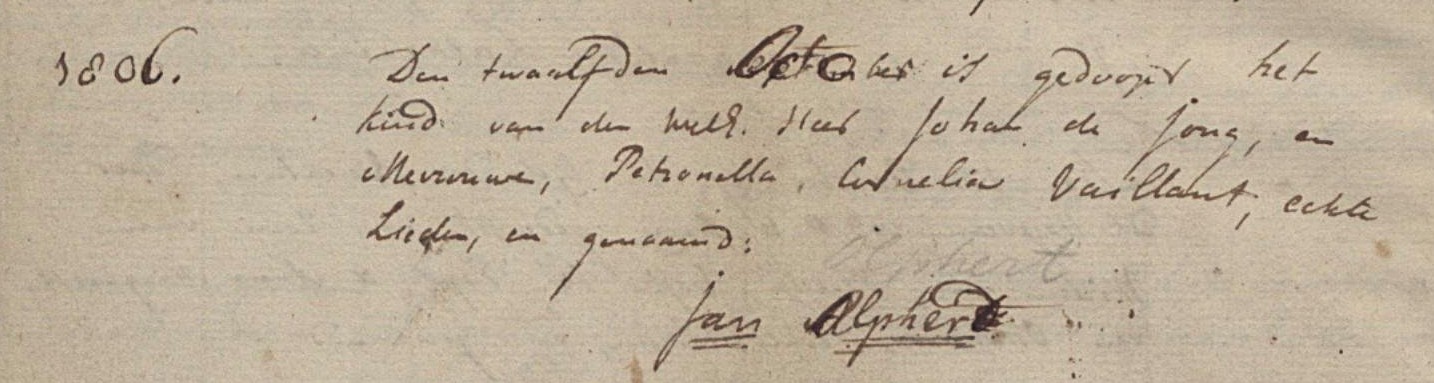 1806. Den twaalfden October is gedoopt het
kind van den WelE. Heer Johan de Jong, en
Mevrouwe, Petronella, Cornelia Vaillant, echte
Lieden, en genaamd:
Olphert
Jan Olphert